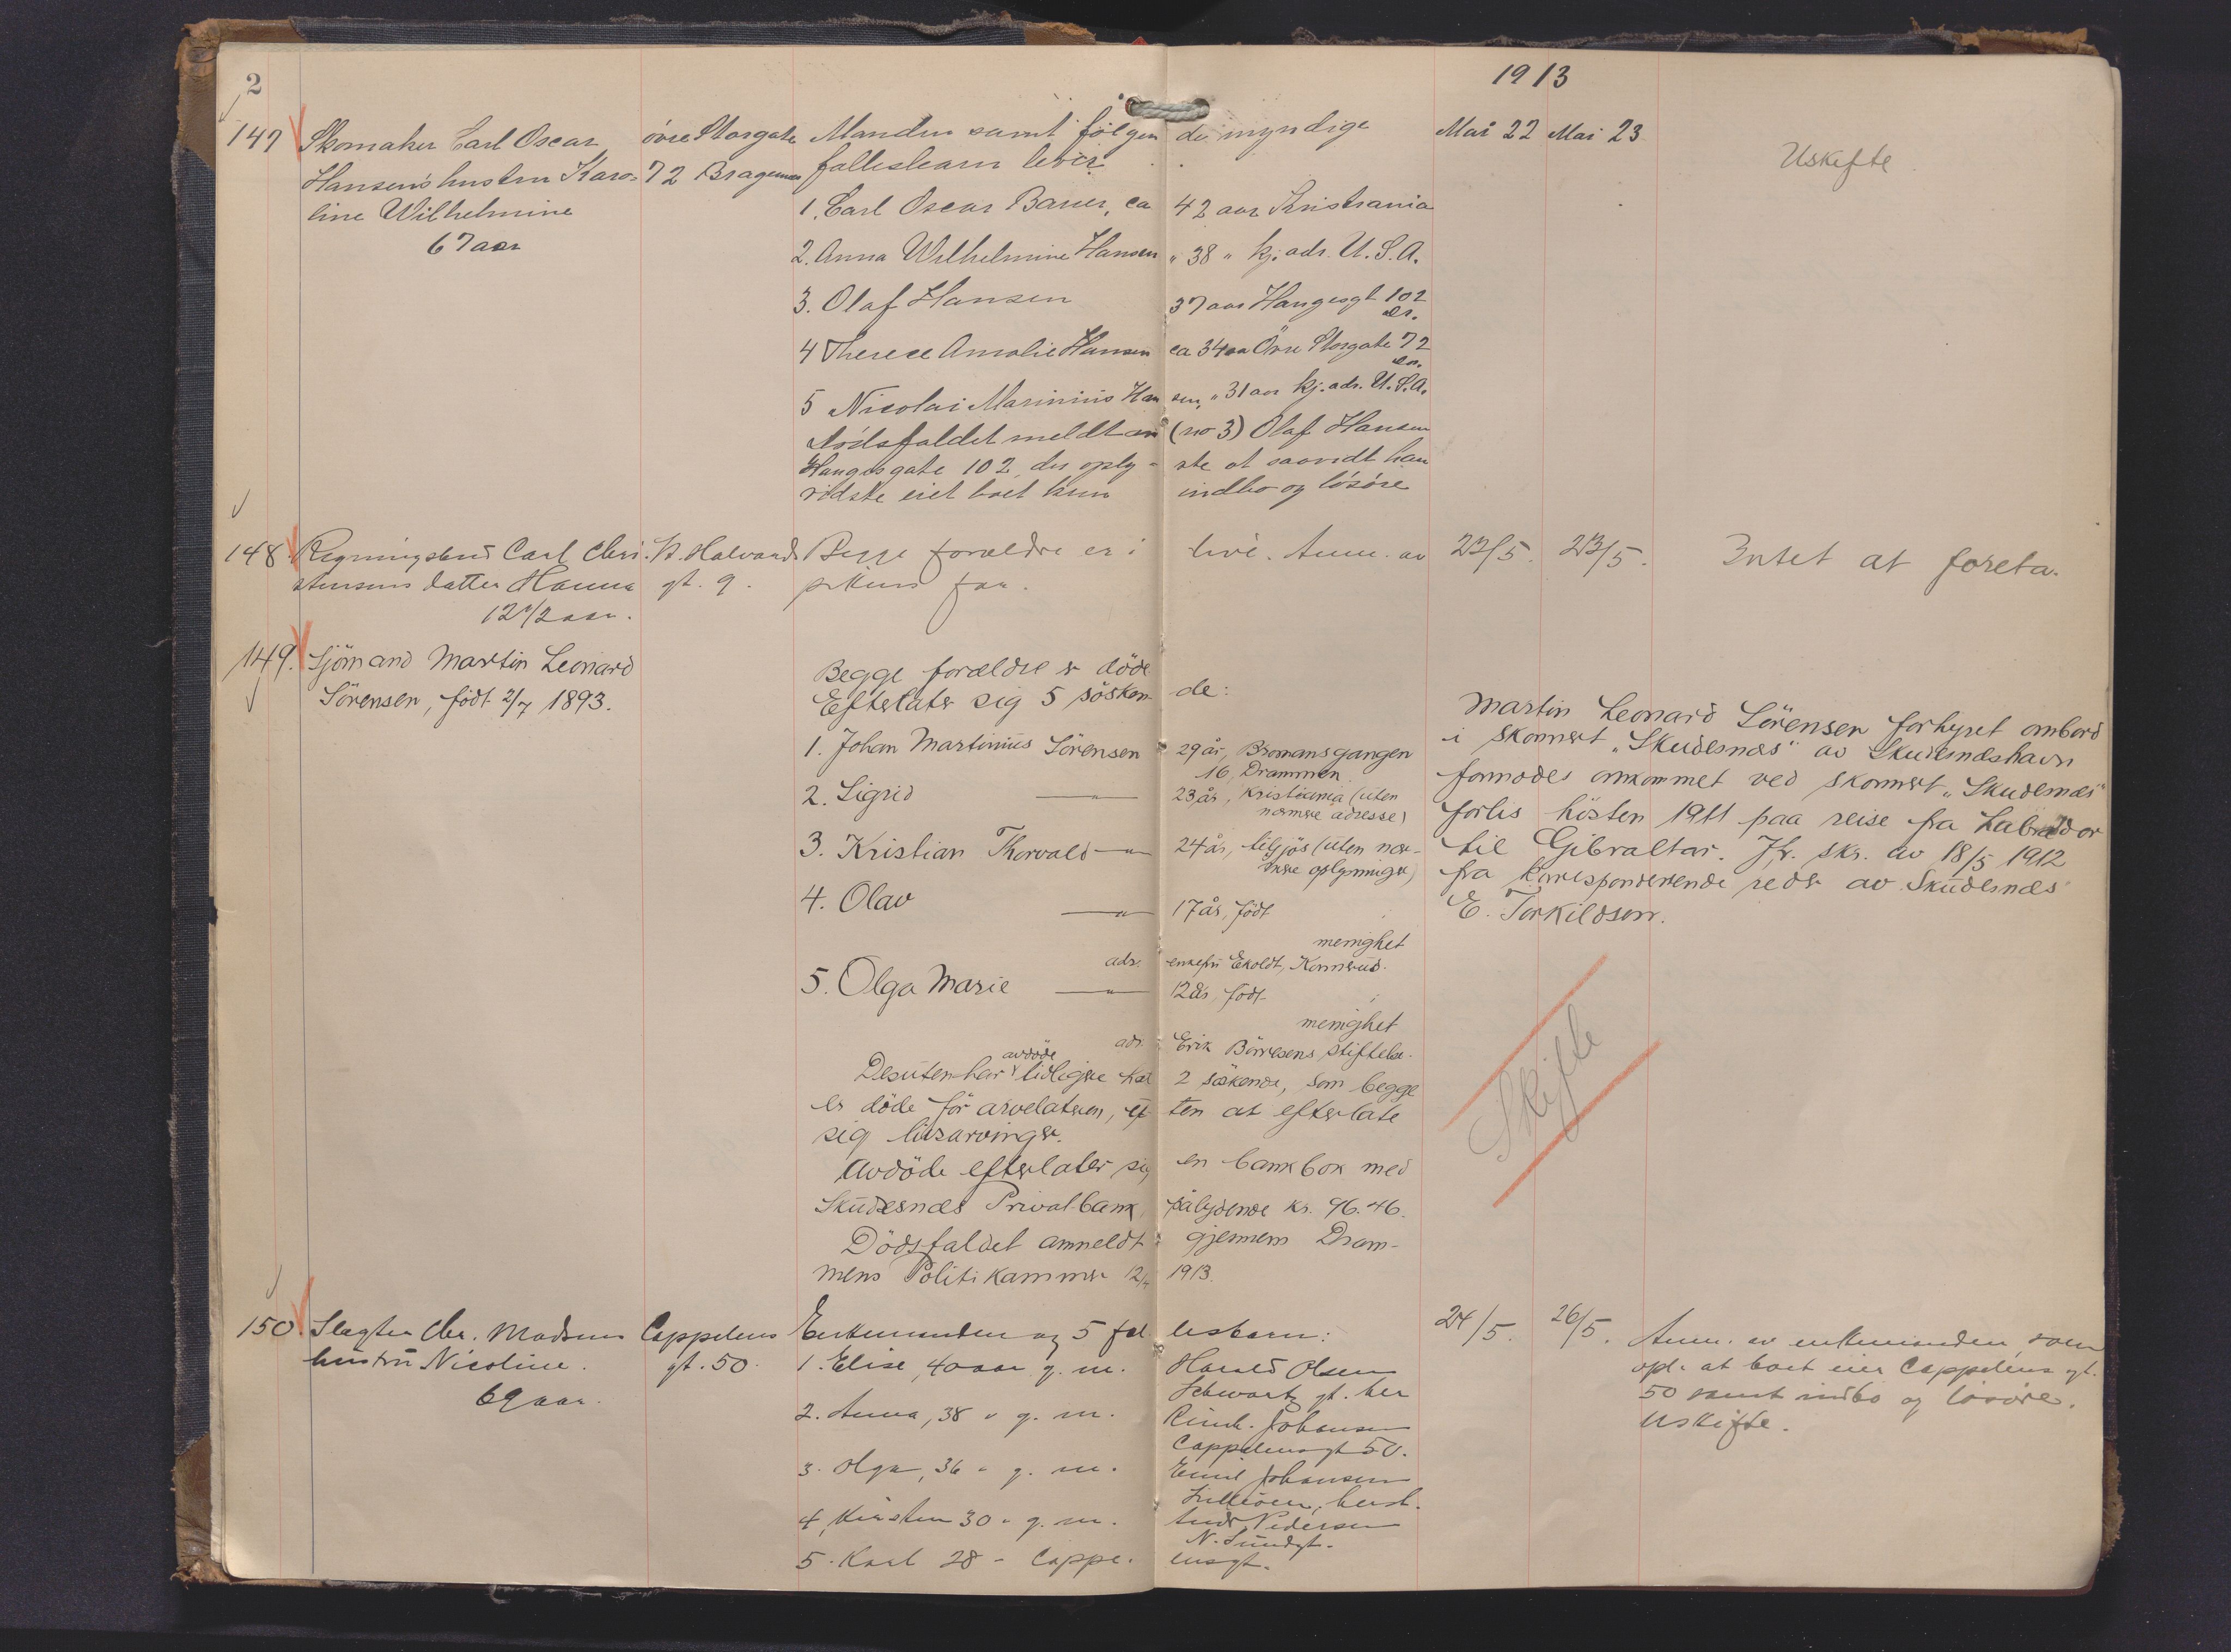 2
1913
147 Skomaker Carl Oscar øvre Storgate Manden samt følgende myndige Mai 22 Mai 23
Hansen's hustru Karo- 72 Bragernes fællesbarn lever Uskifte
line Wilhelmine 1. Carl Oscar ca 42 aar Kristiania
67 aar 2. Anna Wilhelmine Hansen " 38 " kj. adr. U.S.A.
3. Olaf Hansen 37 aar Haugesgt 102
dr.
4 Therese Amalie Hansen ca 34 aar Øvre Storgate 72
dr.
5 Nicolai Marinius Hansen, " 31 aar kj. adr. U.S.A.
Dødsfaldet meldt av (no 3) Olaf Hansen
Haugesgate 102, der oply- ste at saavidt han
vidste eiet boet kun indbo og løsøre
148. Regningsbud Carl Chri- St. Halvards Begge forældre er i live. Anm. av 23/5. 23/5. Intet at foreta.
stensens datter Hanna gt. 9. pikens far.
12 1/2 aar.
149. Sjömand Martin Leonard
Sörensen, födt 2/7 1893.
Begge forældre er döde
Efterlater sig 5 sösken- de:
1. Johan Martinius Sörensen 29 år, Bromansgangen
16, Drammen.
2. Sigrid — " — 23 år, Kristiania (uten
nærmere adresse)
3. Kristian Thorvald — " — 24 år, tilsjös (uten nær-
mere oplysninger)
4. Olav — " — 17 år, födt
menighet
adr. enkefru Ekoldt, Konnerud.
5. Olga Marie — " — 12 år, födt
menighet
adr. Erik Börresens stiftelse.
Desuten har avdöde tidligere hat 2 söskende, som begge
er döde för arvelateren, uten at efterlate
sig livsarvinger.
Avdöde efterlater sig en bankbok med
Skudesnæs Privatbank, pålydende kr. 96.46.
Dödsfaldet anmeldt gjennem Dram-
mens Politikammer 1913.
Martin Leonard Sörensen forhyret ombord
i skonnert "Skudesnæs" av Skudesnæshavn
formodes omkommet ved skonnert "Skudesnæs"
forlis hösten 1911 paa reise fra Labrador
til Gibraltar. Jfr. skr. av 18/5 1912
fra korresponderende reder av Skudesnæs
E. Torkildsen.
Skifte
150. Slagter Chr. Madsens Cappelens Enkemanden og 5 fæl- lesbarn: 24/5. 26/5. Anm. av enkemanden, som
hustru Nicoline. gt. 50. 1. Elise, 40 aar g. m. Harald Olsen opl. at boet eier Cappelens gt.
69 aar. Schwartz gt. her 50 samt indbo og løsøre.
2. Anna, 38 " g. m. Johansen Uskifte.
Cappelensgt 50.
3. Olga, 36 " g. m. Emil Johansen
4. Kirsten 30 " g. m. Andr. Pedersen
N. Sundgt.
5. Karl 28 - Cappe- lensgt.